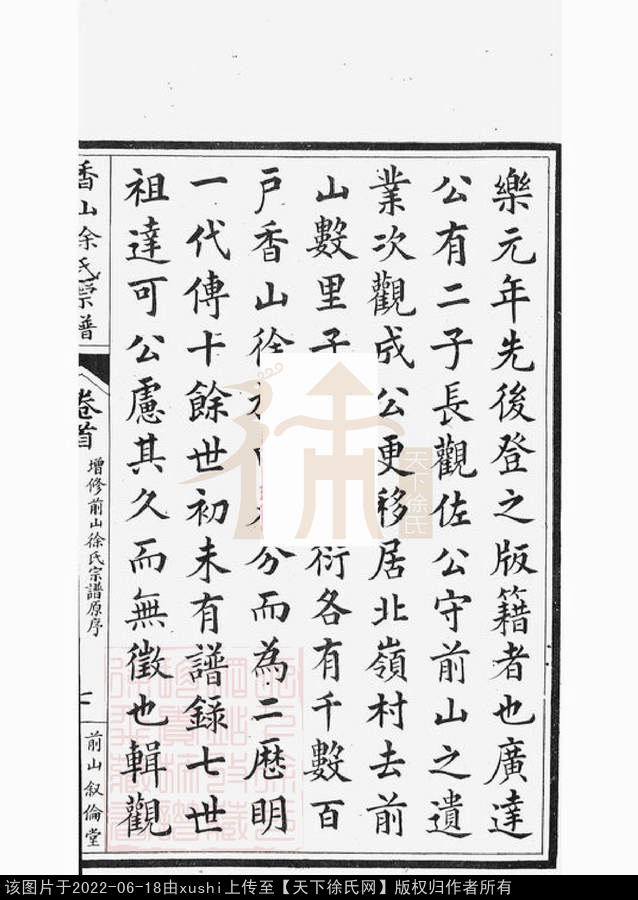 樂元年先後登之版籍者也廣達
公有二子長觀佐公守前山之遺
業次觀成公更移居北嶺村去前
山數里子衍各有千數百
戶香山徐分而為二歷明
一代傳十餘世初未有譜錄七世
祖達可公慮其久而無徵也輯觀
香山徐氏宗譜
卷首
增修前山徐氏宗譜原序
七
前山叙倫堂
天下徐氏
该图片于2022-06-18由xushi上传至【天下徐氏网】版权归作者所有